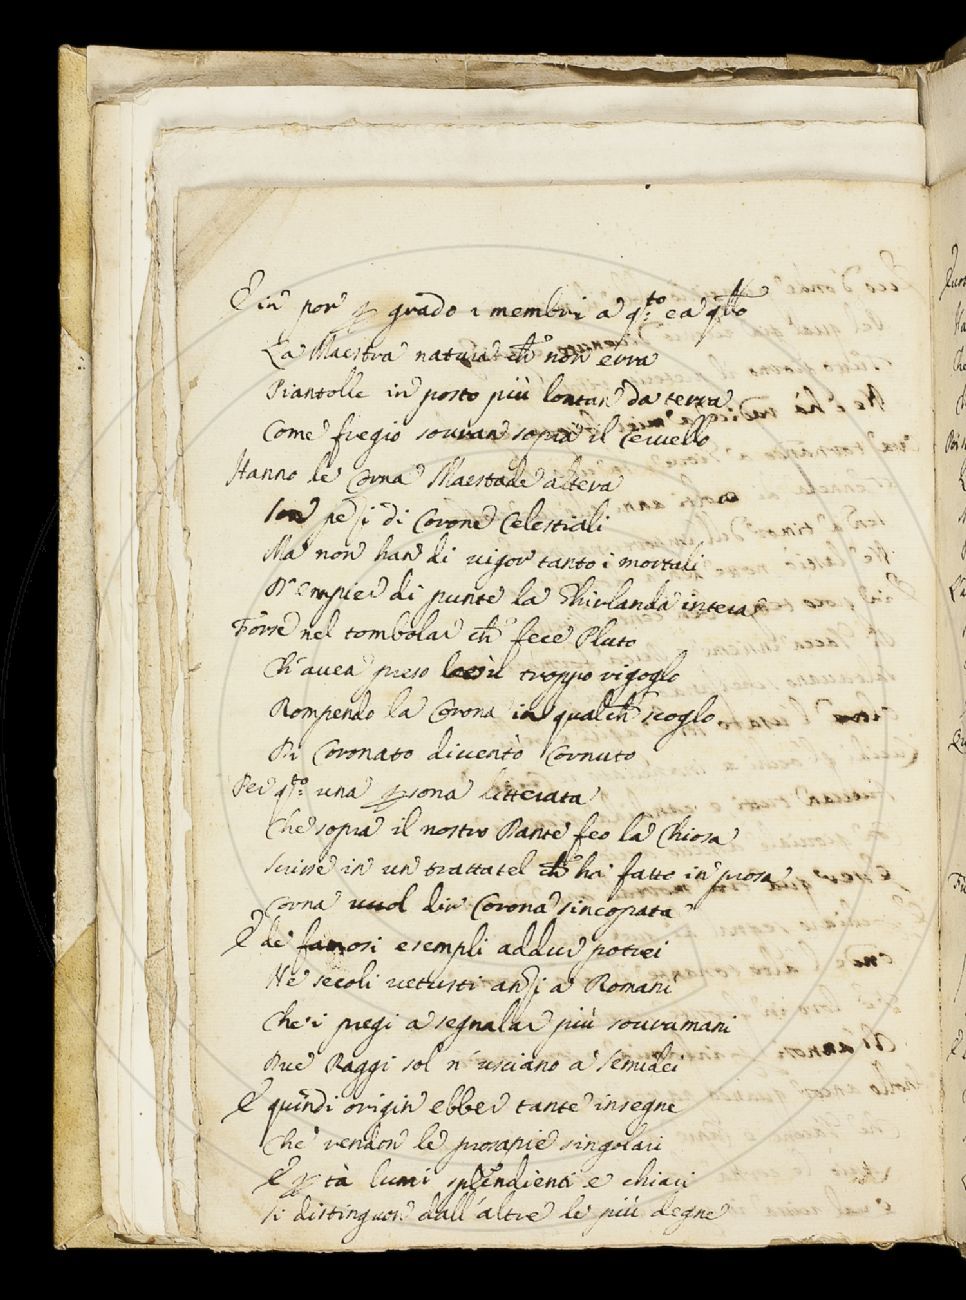 E in por ꝑ grado i membri a q.to e a q.llo
La Maestra natura ch' non erra
Piantolle in posto più lontan da terra
Come fregio souran sopra il ceruello
Hanno le Corna Maestade altera
Son pezzi di Corone Celestiali
Ma non han di uigor tanto i mortali
D'empier di punte la Ghirlanda intera
Forse nel tombolar ch' fece Pluto
Ch'auea preso lassù troppo rigoglo
Rompendo la Corona in qualch' scoglo
Di Coronato diuentò Cornuto
Per q.to una ꝑsona litterata
Che sopra il nostro Dante feo la Chiosa
Scrisse in un trattatel ch' ha fatto in prosa
Corna uuol dir Corona sincopata
E de' famosi esempli addur potrei
Ne secoli uetusti anzi a Romani
Che i pregi a segnalar più sourumani
Due Raggi sol n'usciano a' semidei
E quindi origin ebber tante insegne
Che rendon le prosapie singolari
E ꝑ tà lumi splendienti e chiari
Si distinguon dall'altre le più degne